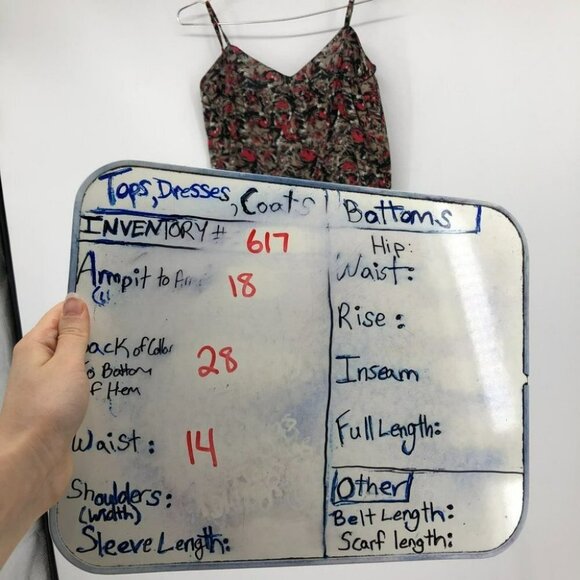 Tops, Dresses, Coats
INVENTORY # 617
Armpit to 18
Back of Collar
To Bottom
of Hem
28
Waist: 14
Shoulders:
(width)
Sleeve Length:
Bottoms
Hip:
Waist:
Rise:
Inseam
Full Length:
Other
Belt Length:
Scarf length: